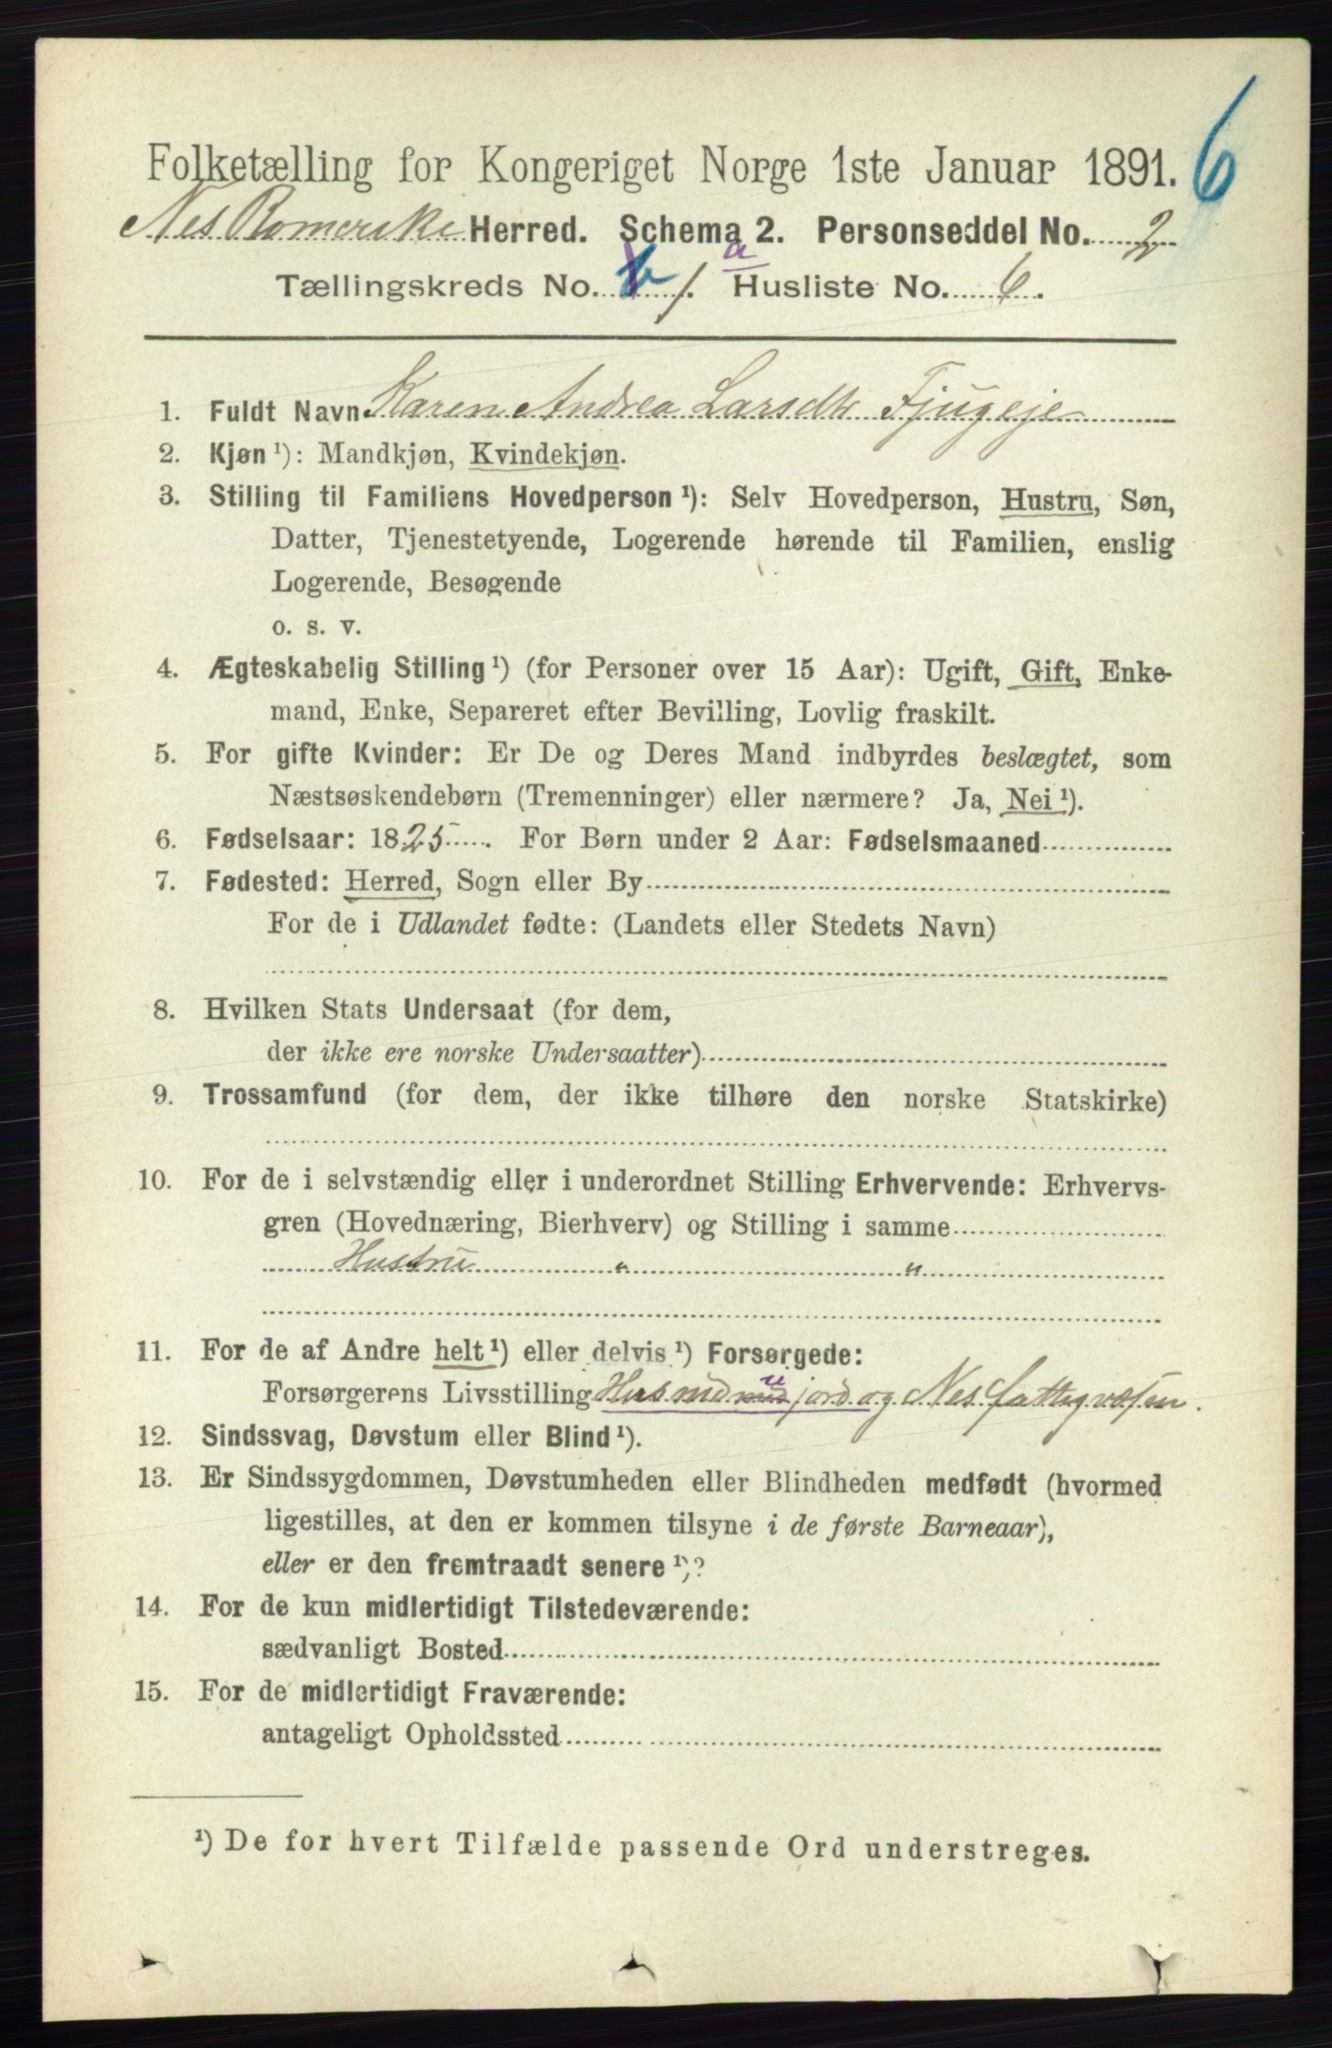 6
Folketælling for Kongeriget Norge 1ste Januar 1891.
Nes Romerike Herred. Schema 2. Personseddel No. 2
Tællingskreds No. 1. a Husliste No. 6.
1. Fuldt Navn Karen Andrea Larsdtr Fjugeje
2. Kjøn ¹): Mandkjøn, Kvindekjøn.
3. Stilling til Familiens Hovedperson ¹): Selv Hovedperson, Hustru, Søn,
Datter, Tjenestetyende, Logerende hørende til Familien, enslig
Logerende, Besøgende
o. s. v.
4. Ægteskabelig Stilling ¹) (for Personer over 15 Aar): Ugift, Gift, Enke-
mand, Enke, Separeret efter Bevilling, Lovlig fraskilt.
5. For gifte Kvinder: Er De og Deres Mand indbyrdes beslægtet, som
Næstsøskendebørn (Tremenninger) eller nærmere? Ja, Nei ¹).
6. Fødselsaar: 1825. For Børn under 2 Aar: Fødselsmaaned
7. Fødested: Herred, Sogn eller By
For de i Udlandet fødte: (Landets eller Stedets Navn)
8. Hvilken Stats Undersaat (for dem,
der ikke ere norske Undersaatter)
9. Trossamfund (for dem, der ikke tilhøre den norske Statskirke)
10. For de i selvstændig eller i underordnet Stilling Erhvervende: Erhvervs-
gren (Hovednæring, Bierhverv) og Stilling i samme
Hustru " "
11. For de af Andre helt ¹) eller delvis ¹) Forsørgede:
Forsørgerens Livsstilling Husmd jord og Nes fattigvæsen.
12. Sindssvag, Døvstum eller Blind ¹).
13. Er Sindssygdommen, Døvstumheden eller Blindheden medfødt (hvormed
ligestilles, at den er kommen tilsyne i de første Barneaar),
eller er den fremtraadt senere ¹)?
14. For de kun midlertidigt Tilstedeværende:
sædvanligt Bosted
15. For de midlertidigt Fraværende:
antageligt Opholdssted
¹) De for hvert Tilfælde passende Ord understreges.